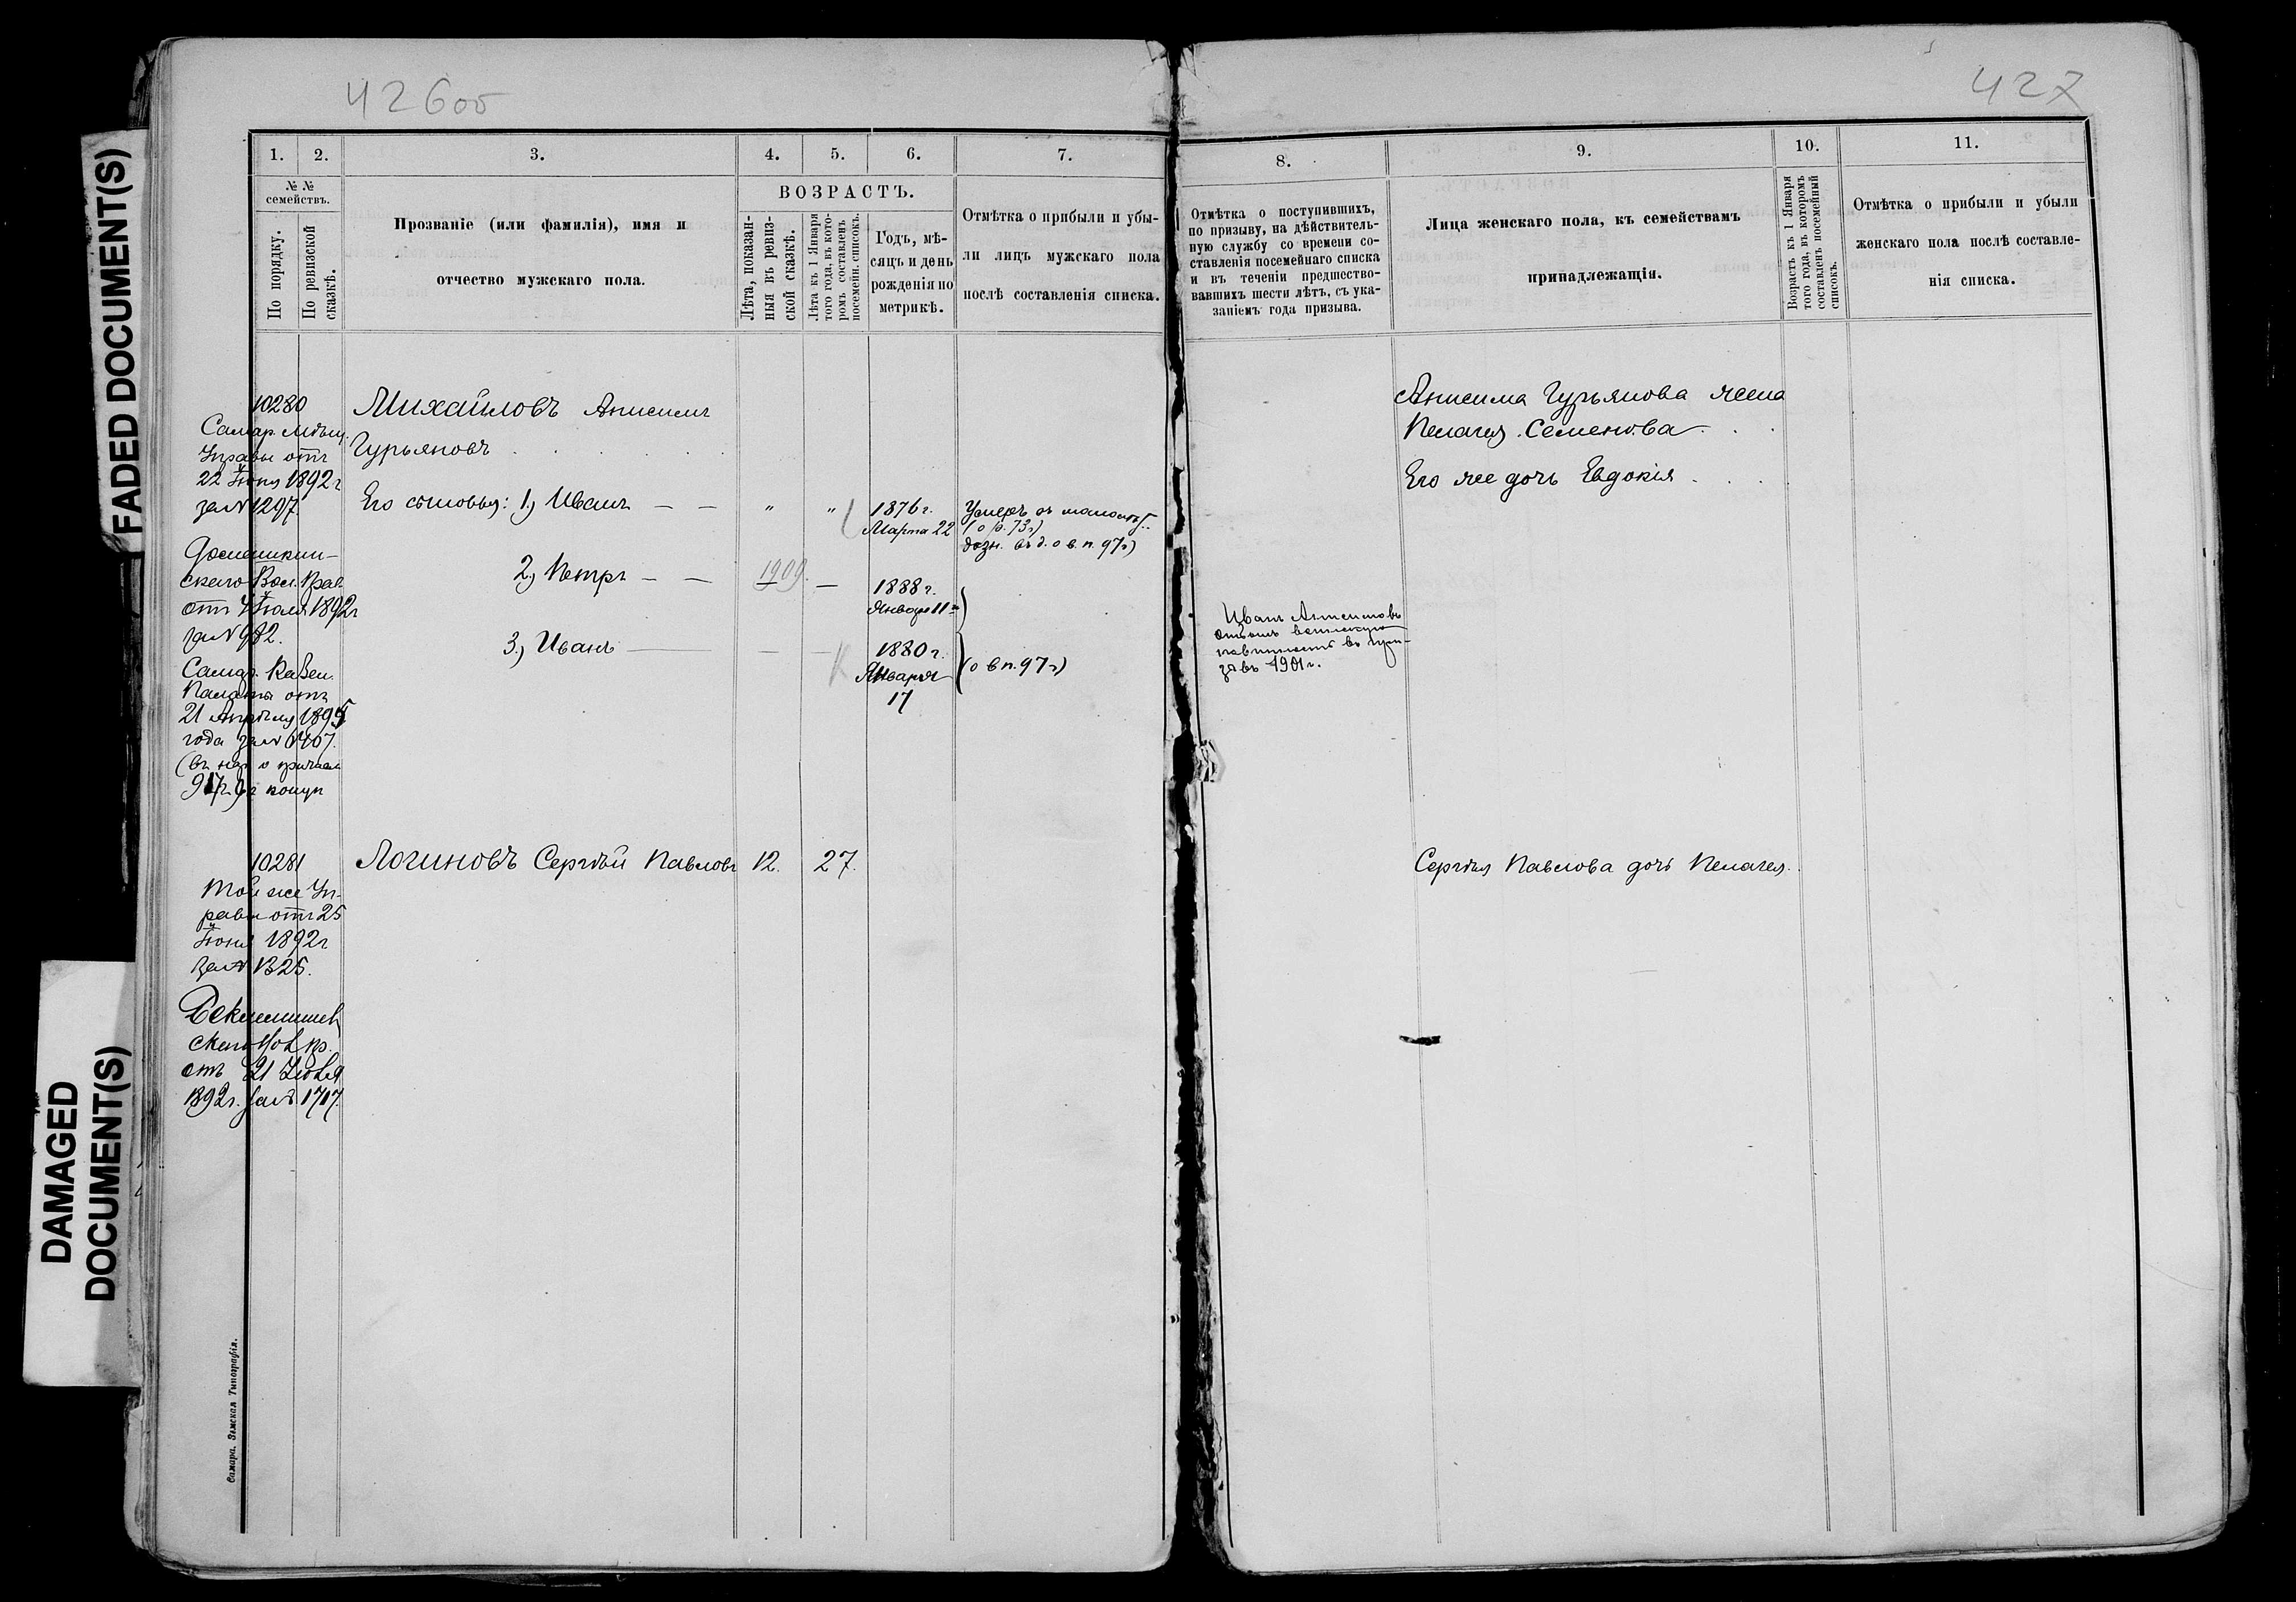 42600
427
FADED DOCUMENT(S)
DAMAGED
DOCUMENT(S)
1.
2.
3.
4.
5.
6.
7.
8.
9.
10.
11.
№ №
семействъ.
По порядку.
По ревизской
сказкѣ.
Прозваніе (или фамилія), имя и
отчество мужскаго пола.
ВОЗРАСТЪ.
Лѣта, показан-
ныя въ ревиз-
ской сказкѣ.
Лѣта къ 1 Января
того года, въ кото-
ромъ составленъ
посемейн. списокъ.
Годъ, мѣ-
сяцъ и день
рожденія по
метрикѣ.
Отмѣтка о прибыли и убы-
ли лицъ мужскаго пола
послѣ составленія списка.
Отмѣтка о поступившихъ,
по призыву, на дѣйствитель-
ную службу со времени со-
ставленія посемейнаго списка
и въ теченіи предшество-
вавшихъ шести лѣтъ, съ ука-
заніемъ года призыва.
Лица женскаго пола, къ семействамъ
принадлежащія.
Возрастъ къ 1 Января
того года, въ которомъ
составленъ посемейный
списокъ.
Отмѣтка о прибыли и убыли
женскаго пола послѣ составле-
нія списка.
10280
Самар. Мѣщ.
Управы отъ
22 Іюня 1892 г
за № 1297.
скаго Вол. Прав
отъ 4 Іюля 1892 г
за № 982.
Самар. Казен.
Палаты отъ
21 Апрѣля 1895
года за №
Михайловъ Анисимъ
Гурьяновъ
Его сыновья: 1) Иванъ — —
" "
1876 г.
Марта 22
Умеръ
(о р. 73 г)
дозн. въ д. о в. п. 97 г)
2) Петръ — —
1909. —
1888 г.
Января 11
3) Иванъ — — —
1880 г.
Января
17
(о в п. 97 г)
Иванъ Анисимовъ
отбылъ воинскую
повинность въ
1901 г.
Анисима Гурьянова жена
Пелагея Семенова
Его же дочь Евдокія
10281
Той же Уп-
равы отъ 25
Іюня 1892 г
за № 1325.
отъ 21 Іюля
1892 г. за № 1717.
Логиновъ Сергѣй Павловъ 12. 27.
Сергѣя Павлова дочь Пелагея.
Самара. Земская Типографія.